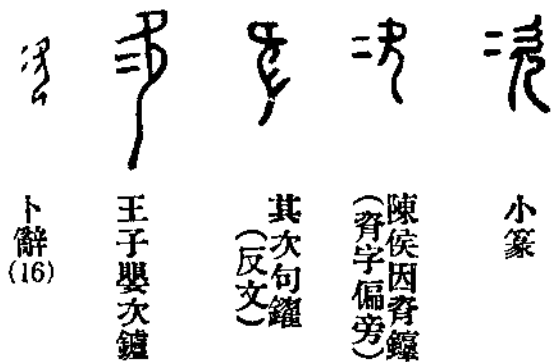 小篆
陳侯因𦙞錞
(𦙞字偏旁)
其次句鑃
(反文)
王子嬰次鑪
卜辭
(16)